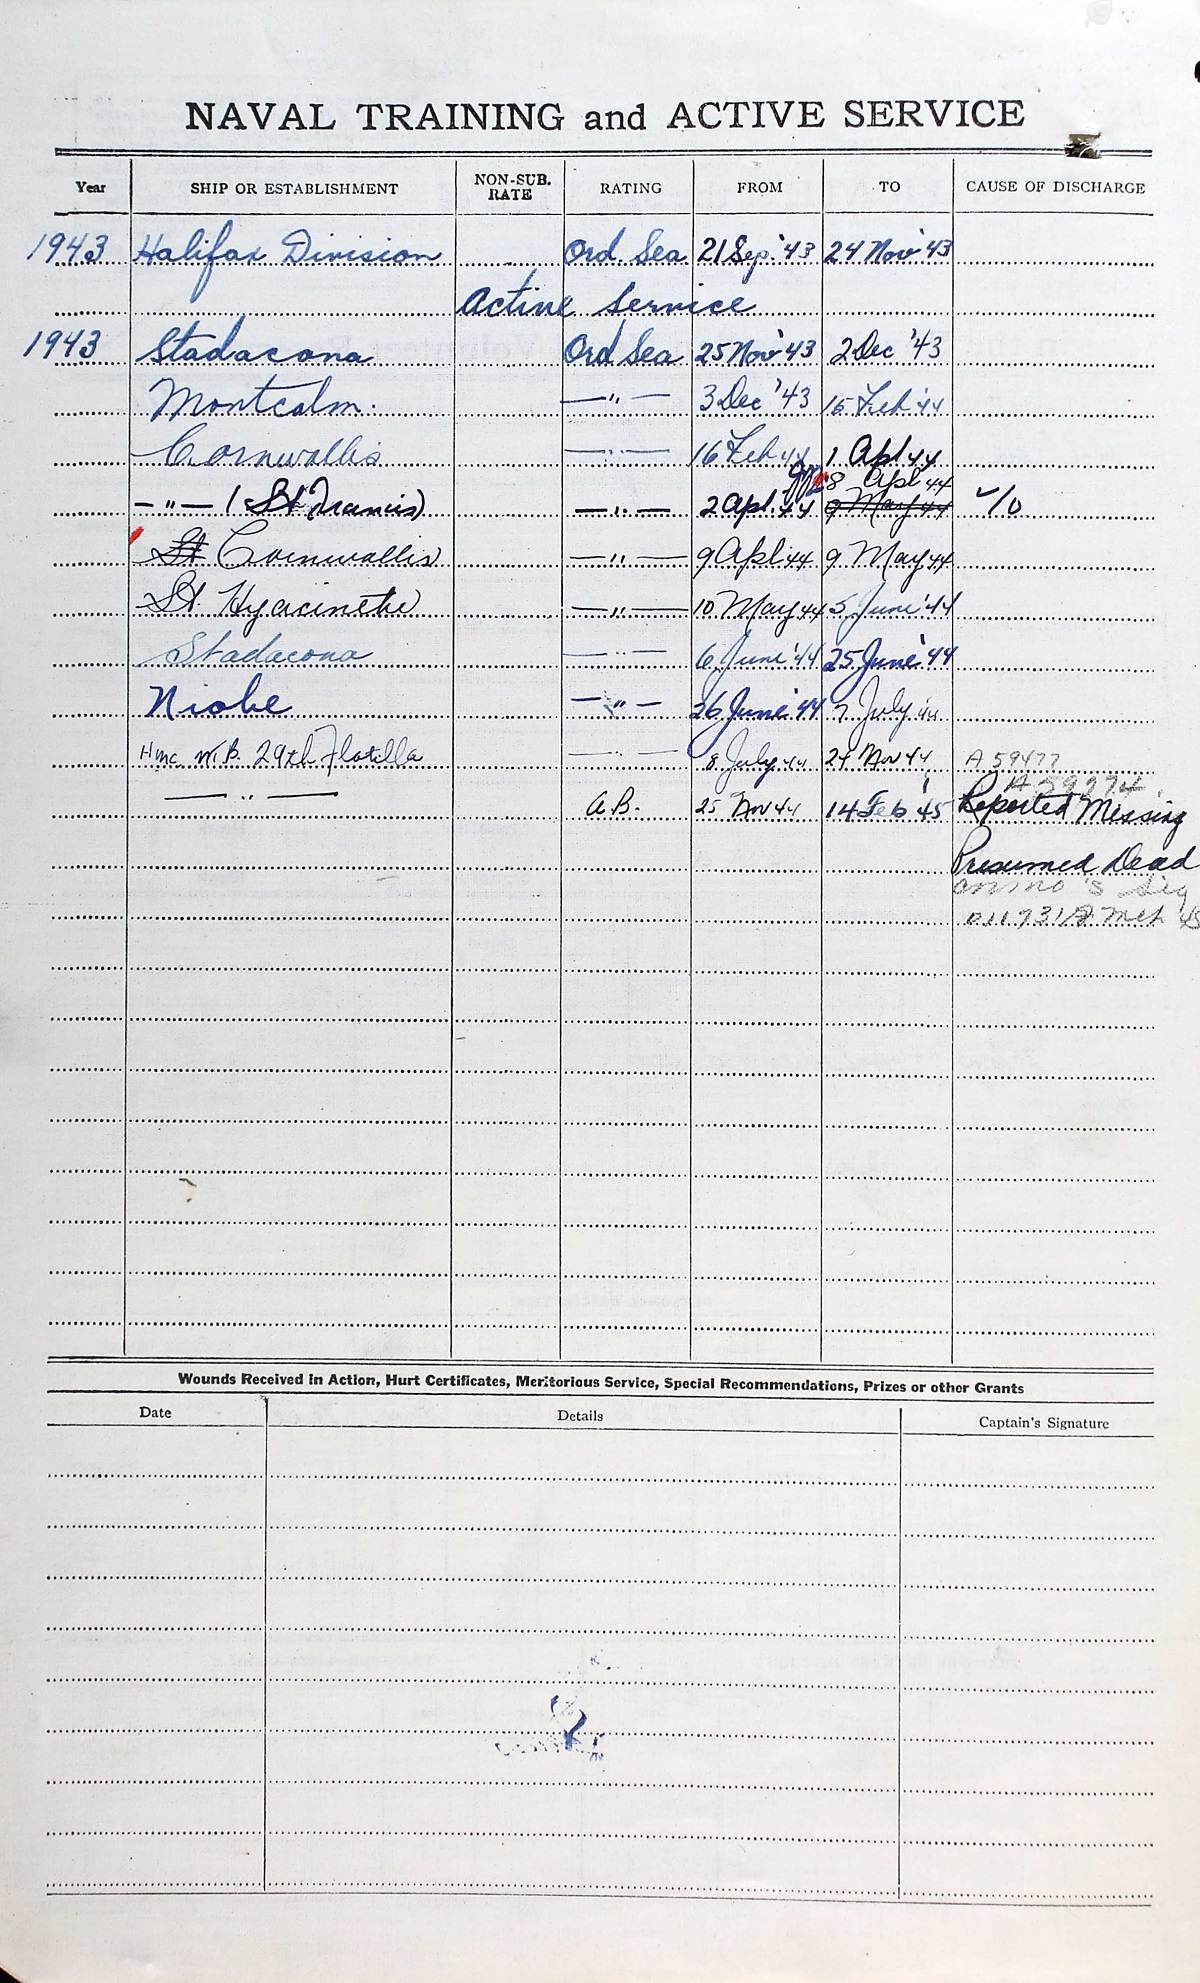 NAVAL TRAINING and ACTIVE SERVICE
Year SHIP OR ESTABLISHMENT NON-SUB. RATE RATING FROM TO CAUSE OF DISCHARGE
1943 Halifax Division Ord. Sea 21 Sep. '43 24 Nov '43
Active Service
1943 Stadacona Ord Sea 25 Nov '43 2 Dec '43
Montcalm. —"— 3 Dec '43 15 Feb '44
Cornwallis —"— 16 Feb 44 1 Apl 44
—"— (St Francis) —"— 2 Apl. 44 8 Apl 44 9 May 44
St Cornwallis —"— 9 Apl 44 9 May 44
St. Hyacinthe —"— 10 May 44 5 June '44
Stadacona —"— 6 June '44 25 June '44
Niobe —"— 26 June '44 7 July 44
Hmc M.B. 29th Flotilla —"— 8 July 44 24 Nov 44 A 59477
—"— A.B. 25 Nov 44 14 Feb '45 A 59974.
Reported Missing
Presumed Dead
's Sig
Wounds Received in Action, Hurt Certificates, Meritorious Service, Special Recommendations, Prizes or other Grants
Date Details Captain's Signature